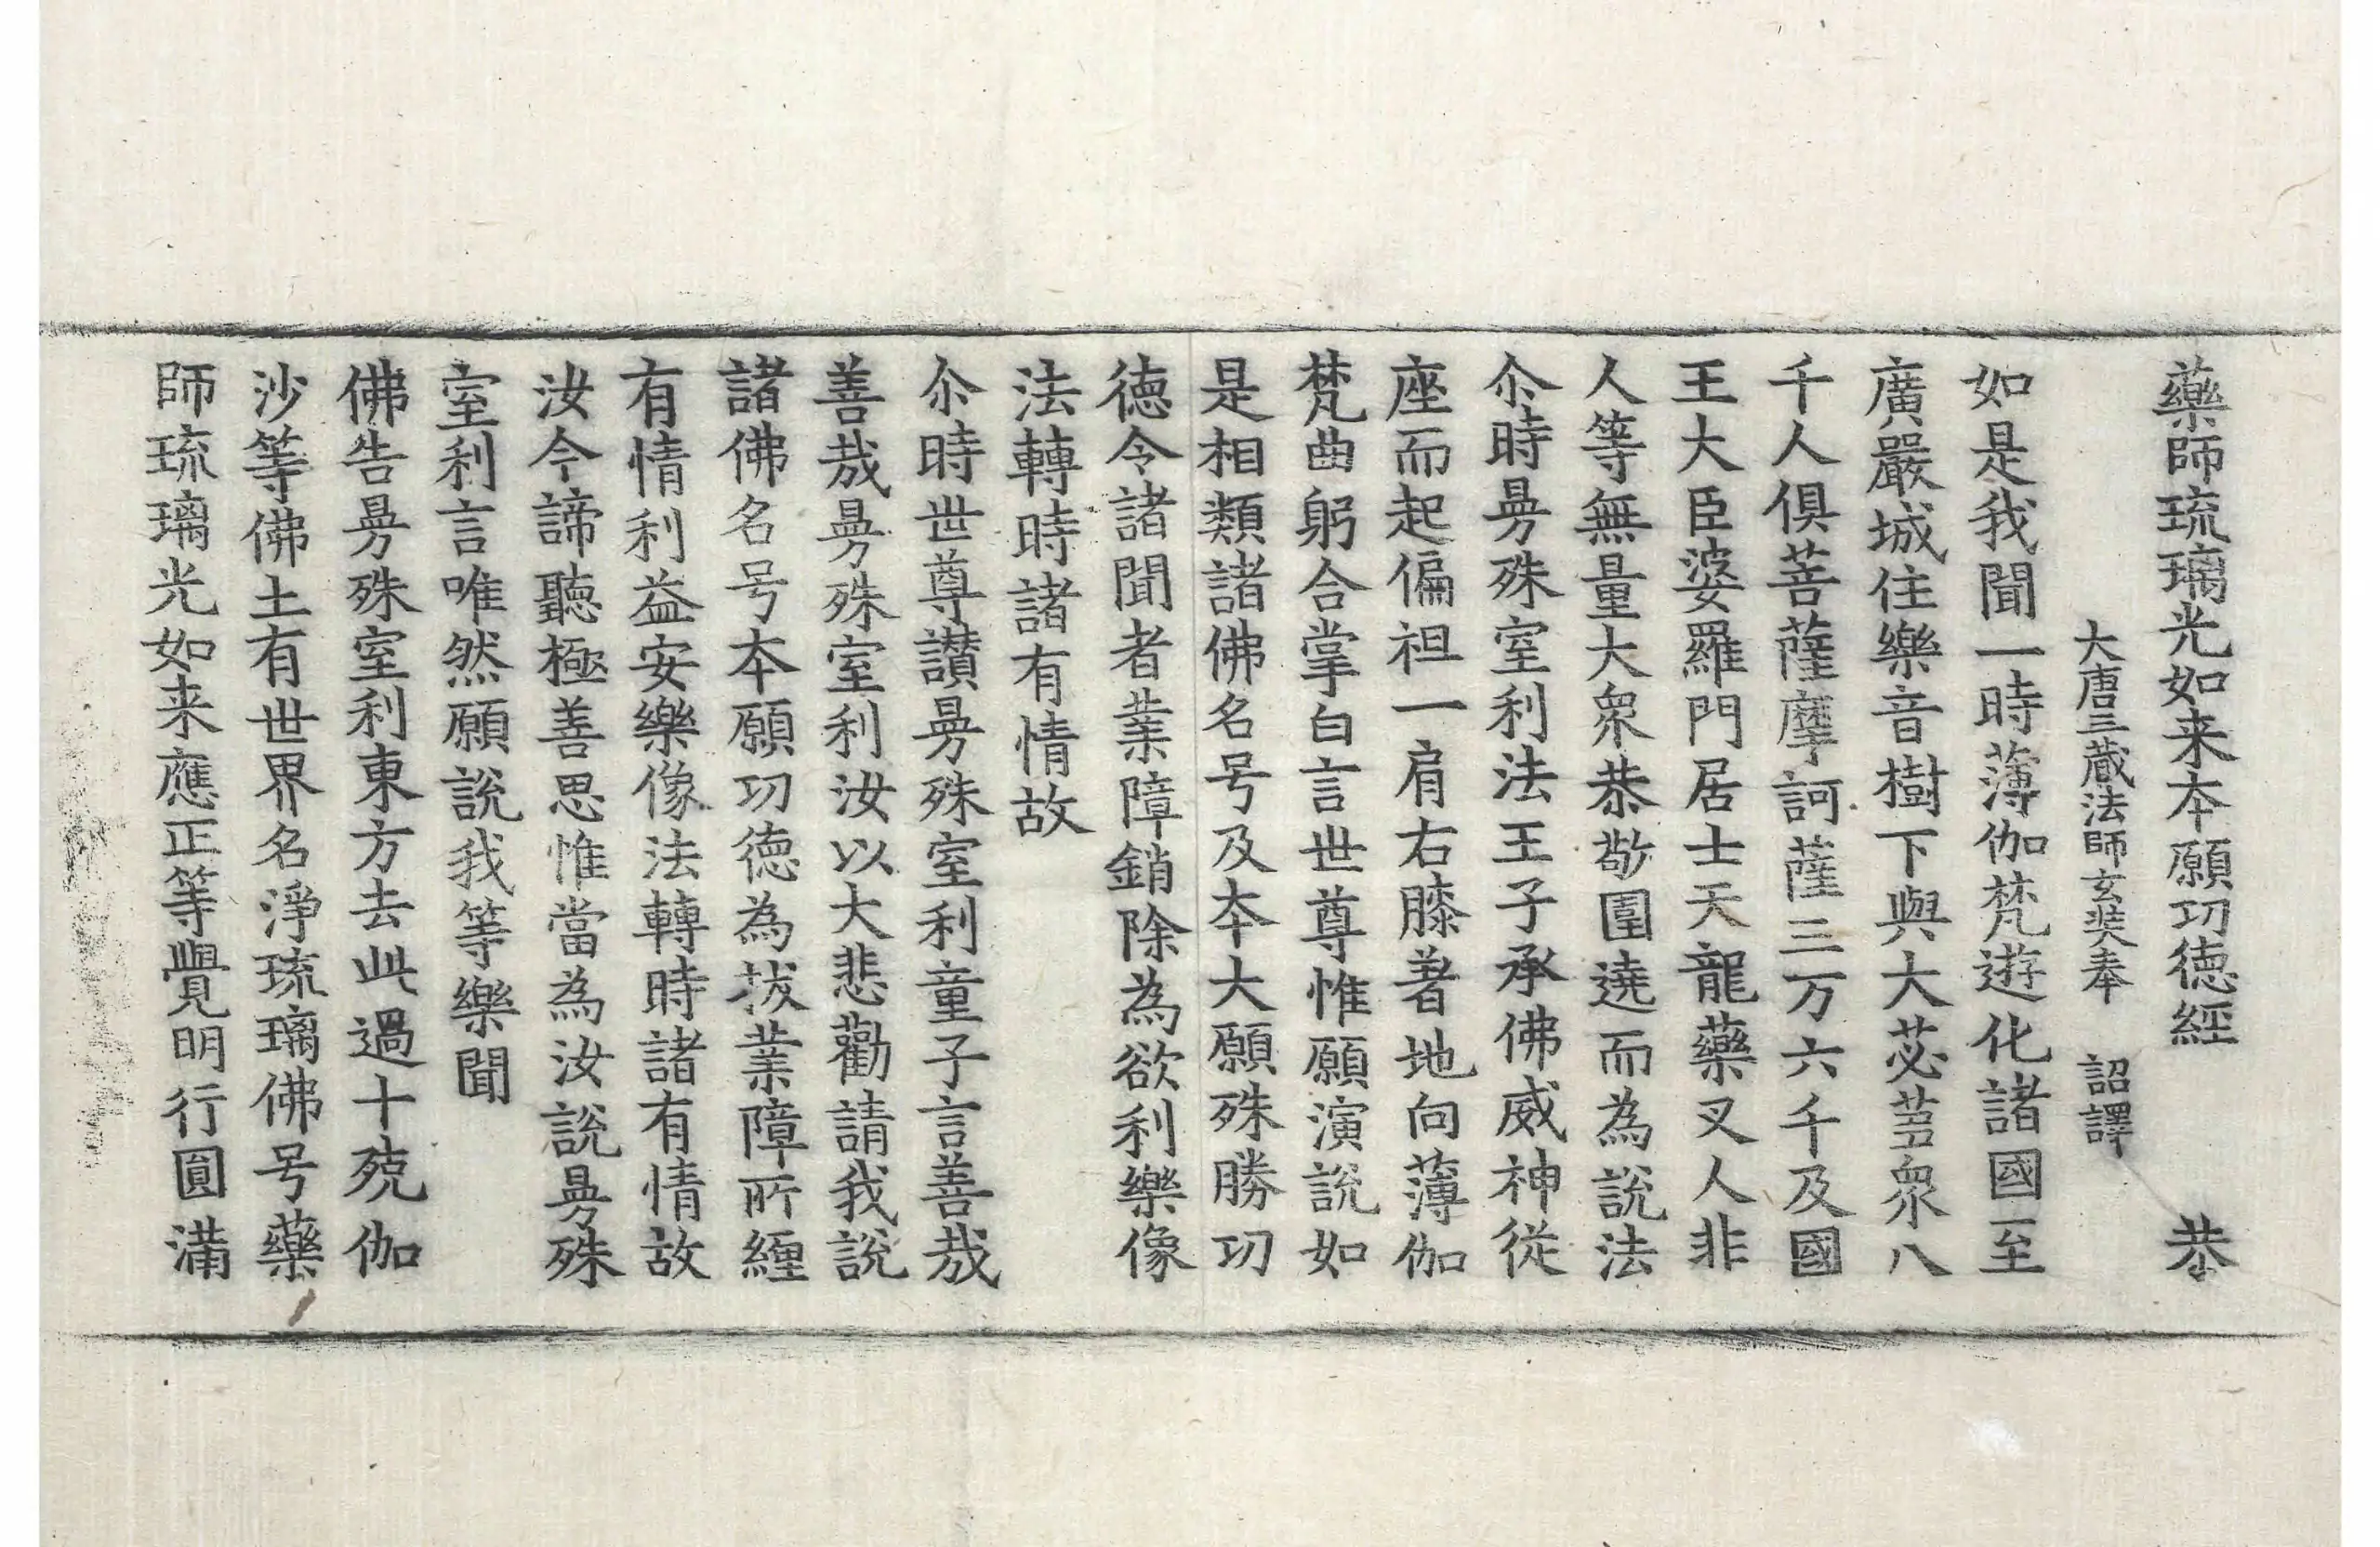 藥師琉璃光如来本願功徳經 恭
大唐三蔵法師玄奘奉 詔譯
如是我聞一時薄伽梵遊化諸國至
廣嚴城住樂音樹下與大苾芻衆八
千人俱菩薩摩訶薩三万六千及國
王大臣婆羅門居士天龍藥叉人非
人等無量大衆恭敬圍遶而為說法
尒時曼殊室利法王子承佛威神從
座而起偏袒一肩右膝著地向薄伽
梵曲躬合掌白言世尊惟願演說如
是相類諸佛名号及本大願殊勝功
徳令諸聞者業障銷除為欲利樂像
法轉時諸有情故
尒時世尊讃曼殊室利童子言善哉
善哉曼殊室利汝以大悲勸請我說
諸佛名号本願功徳為拔業障所纏
有情利益安樂像法轉時諸有情故
汝今諦聽極善思惟當為汝說曼殊
室利言唯然願說我等樂聞
佛告曼殊室利東方去此過十殑伽
沙等佛土有世界名淨琉璃佛号藥
師琉璃光如来應正等覺明行圓滿